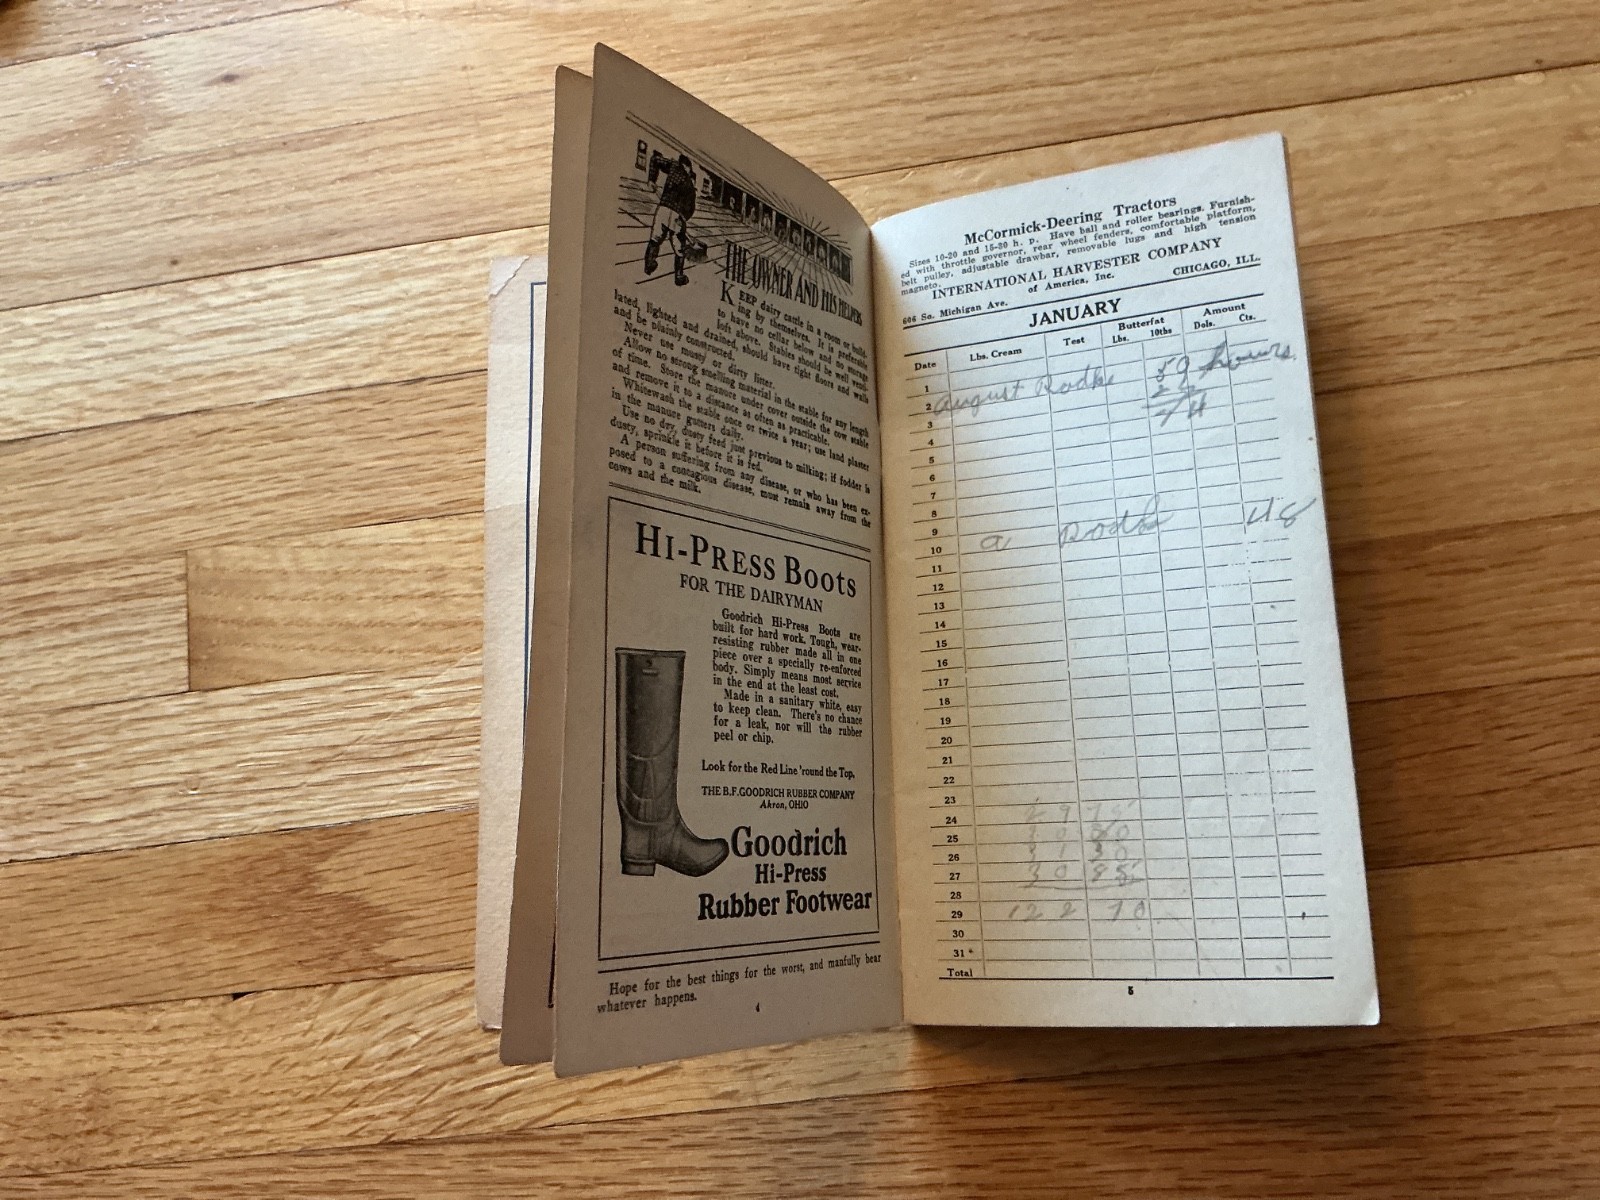 THE OWNER AND HIS HELPERS
KEEP dairy cattle in a room or build-
ing by themselves. It is preferable
to have no cellar below and no storage
loft above. Stables should be well venti-
lated, lighted and drained, should have tight floors and walls
and be plainly constructed.
Never use musty or dirty litter.
Allow no strong smelling material in the stable for any length
of time. Store the manure under cover outside the cow stable
and remove it to a distance as often as practicable.
Whitewash the stable once or twice a year; use land plaster
in the manure gutters daily.
Use no dry, dusty feed just previous to milking; if fodder is
dusty, sprinkle it before it is fed.
A person suffering from any disease, or who has been ex-
posed to a contagious disease, must remain away from the
cows and the milk.
HI-PRESS BOOTS
FOR THE DAIRYMAN
Goodrich Hi-Press Boots are
built for hard work. Tough, wear-
resisting rubber made all in one
piece over a specially re-enforced
body. Simply means most service
in the end at the least cost.
Made in a sanitary white, easy
to keep clean. There's no chance
for a leak, nor will the rubber
peel or chip.
Look for the Red Line 'round the Top.
THE B.F. GOODRICH RUBBER COMPANY
Akron, OHIO
Goodrich
Hi-Press
Rubber Footwear
Hope for the best things for the worst, and manfully bear
whatever happens.
4
McCormick-Deering Tractors
Sizes 10-20 and 15-30 h. p. Have ball and roller bearings. Furnish-
ed with throttle governor, rear wheel fenders, comfortable platform,
belt pulley, adjustable drawbar, removable lugs and high tension
magneto.
INTERNATIONAL HARVESTER COMPANY
606 So. Michigan Ave. of America, Inc. CHICAGO, ILL.
JANUARY
Date Lbs. Cream Test Butterfat Lbs. 10ths Amount Dols. Cts.
1 59 hours
2 August Radke
3
4
5
6
7
8
9
10 a Radke
11
12
13
14
15
16
17
18
19
20
21
22
23
24 29 75
25
26 31 30
27 30 85
28
29 122 70
30
31
Total
5